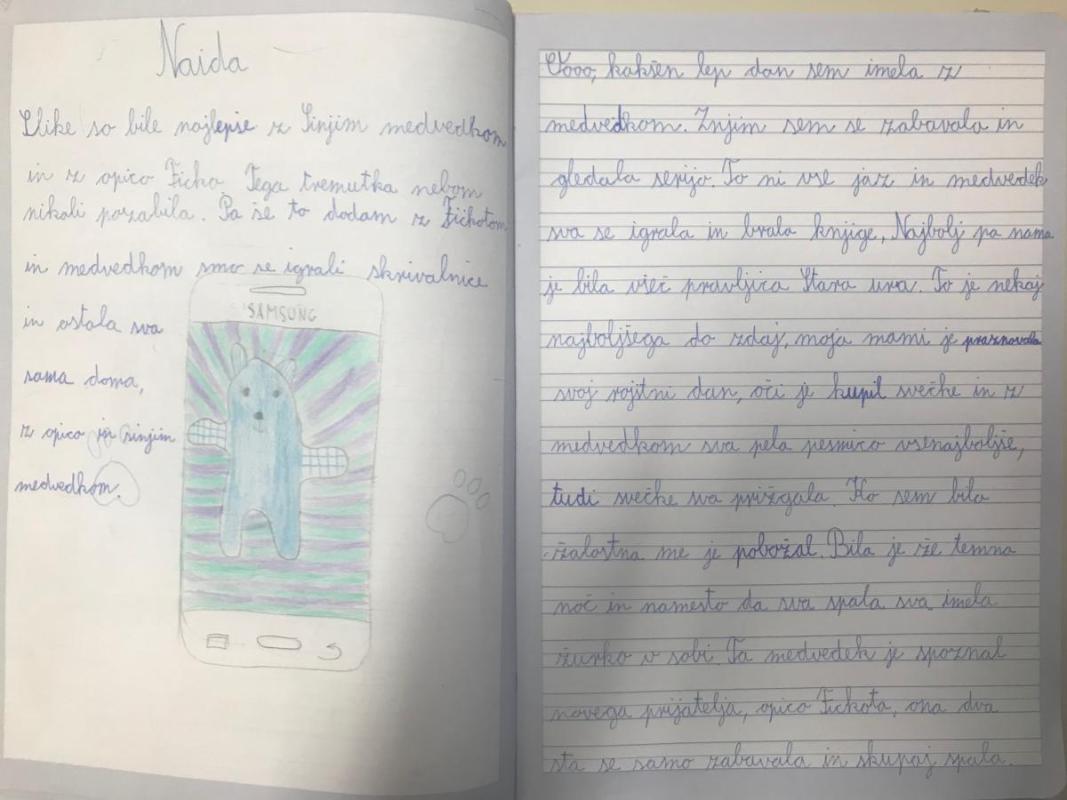 Naida
Slike so bile najlepše z Sinjim medvedkom
in z opico Ficko. Tega tremutka nebom
nikoli pozabila. Pa še to dodam z Fičkotom
in medvedkom smo se igrali skrivalnice
in ostala sva
sama doma,
z opico in sinjim
medvedkom.
SAMSUNG
Vooo, kakšen lep dan sem imela z
medvedkom. Znjim sem se zabavala in
gledala serijo. To ni vse jaz in medvedek
sva se igrala in brala knjige, Najbolj pa nama
je bila všeč pravljica Stara ura. To je nekaj
najboljšega do zdaj, moja mami je praznovala
svoj rojtni dan, oči je kupil svečke in z
medvedkom sva pela pesmico vsenajboljše,
tudi svečke sva prižgala. Ko sem bila
žalostna me je pobožal. Bila je že temna
noč in namesto da sva spala sva imela
žurko v sobi. Ta medvedek je spoznal
novega prijatelja, opico Fičkota, ona dva
sta se samo zabavala in skupaj spala.